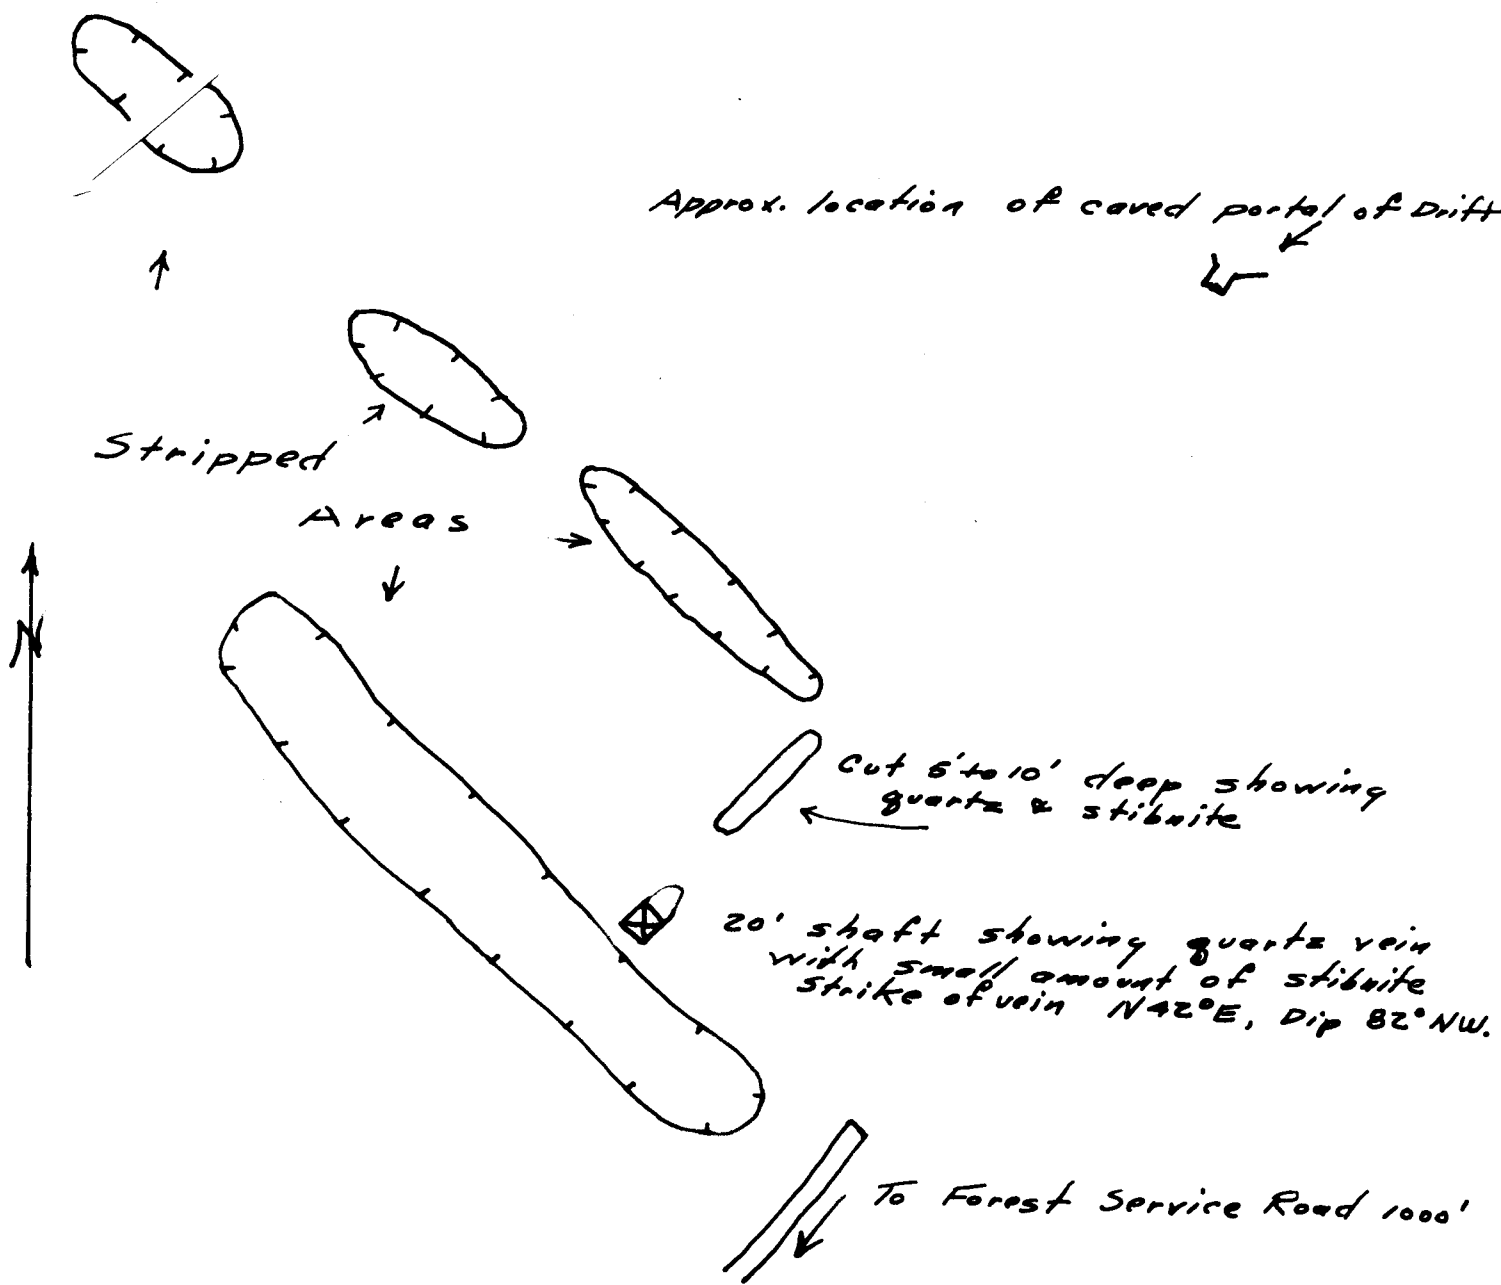 Approx. location of caved portal of Drift
Stripped
Areas
N
Cut 5' to 10' deep showing
quartz & stibnite
20' shaft showing quartz vein
with small amount of stibnite
strike of vein N42°E, Dip 82°NW.
To Forest Service Road 1000'